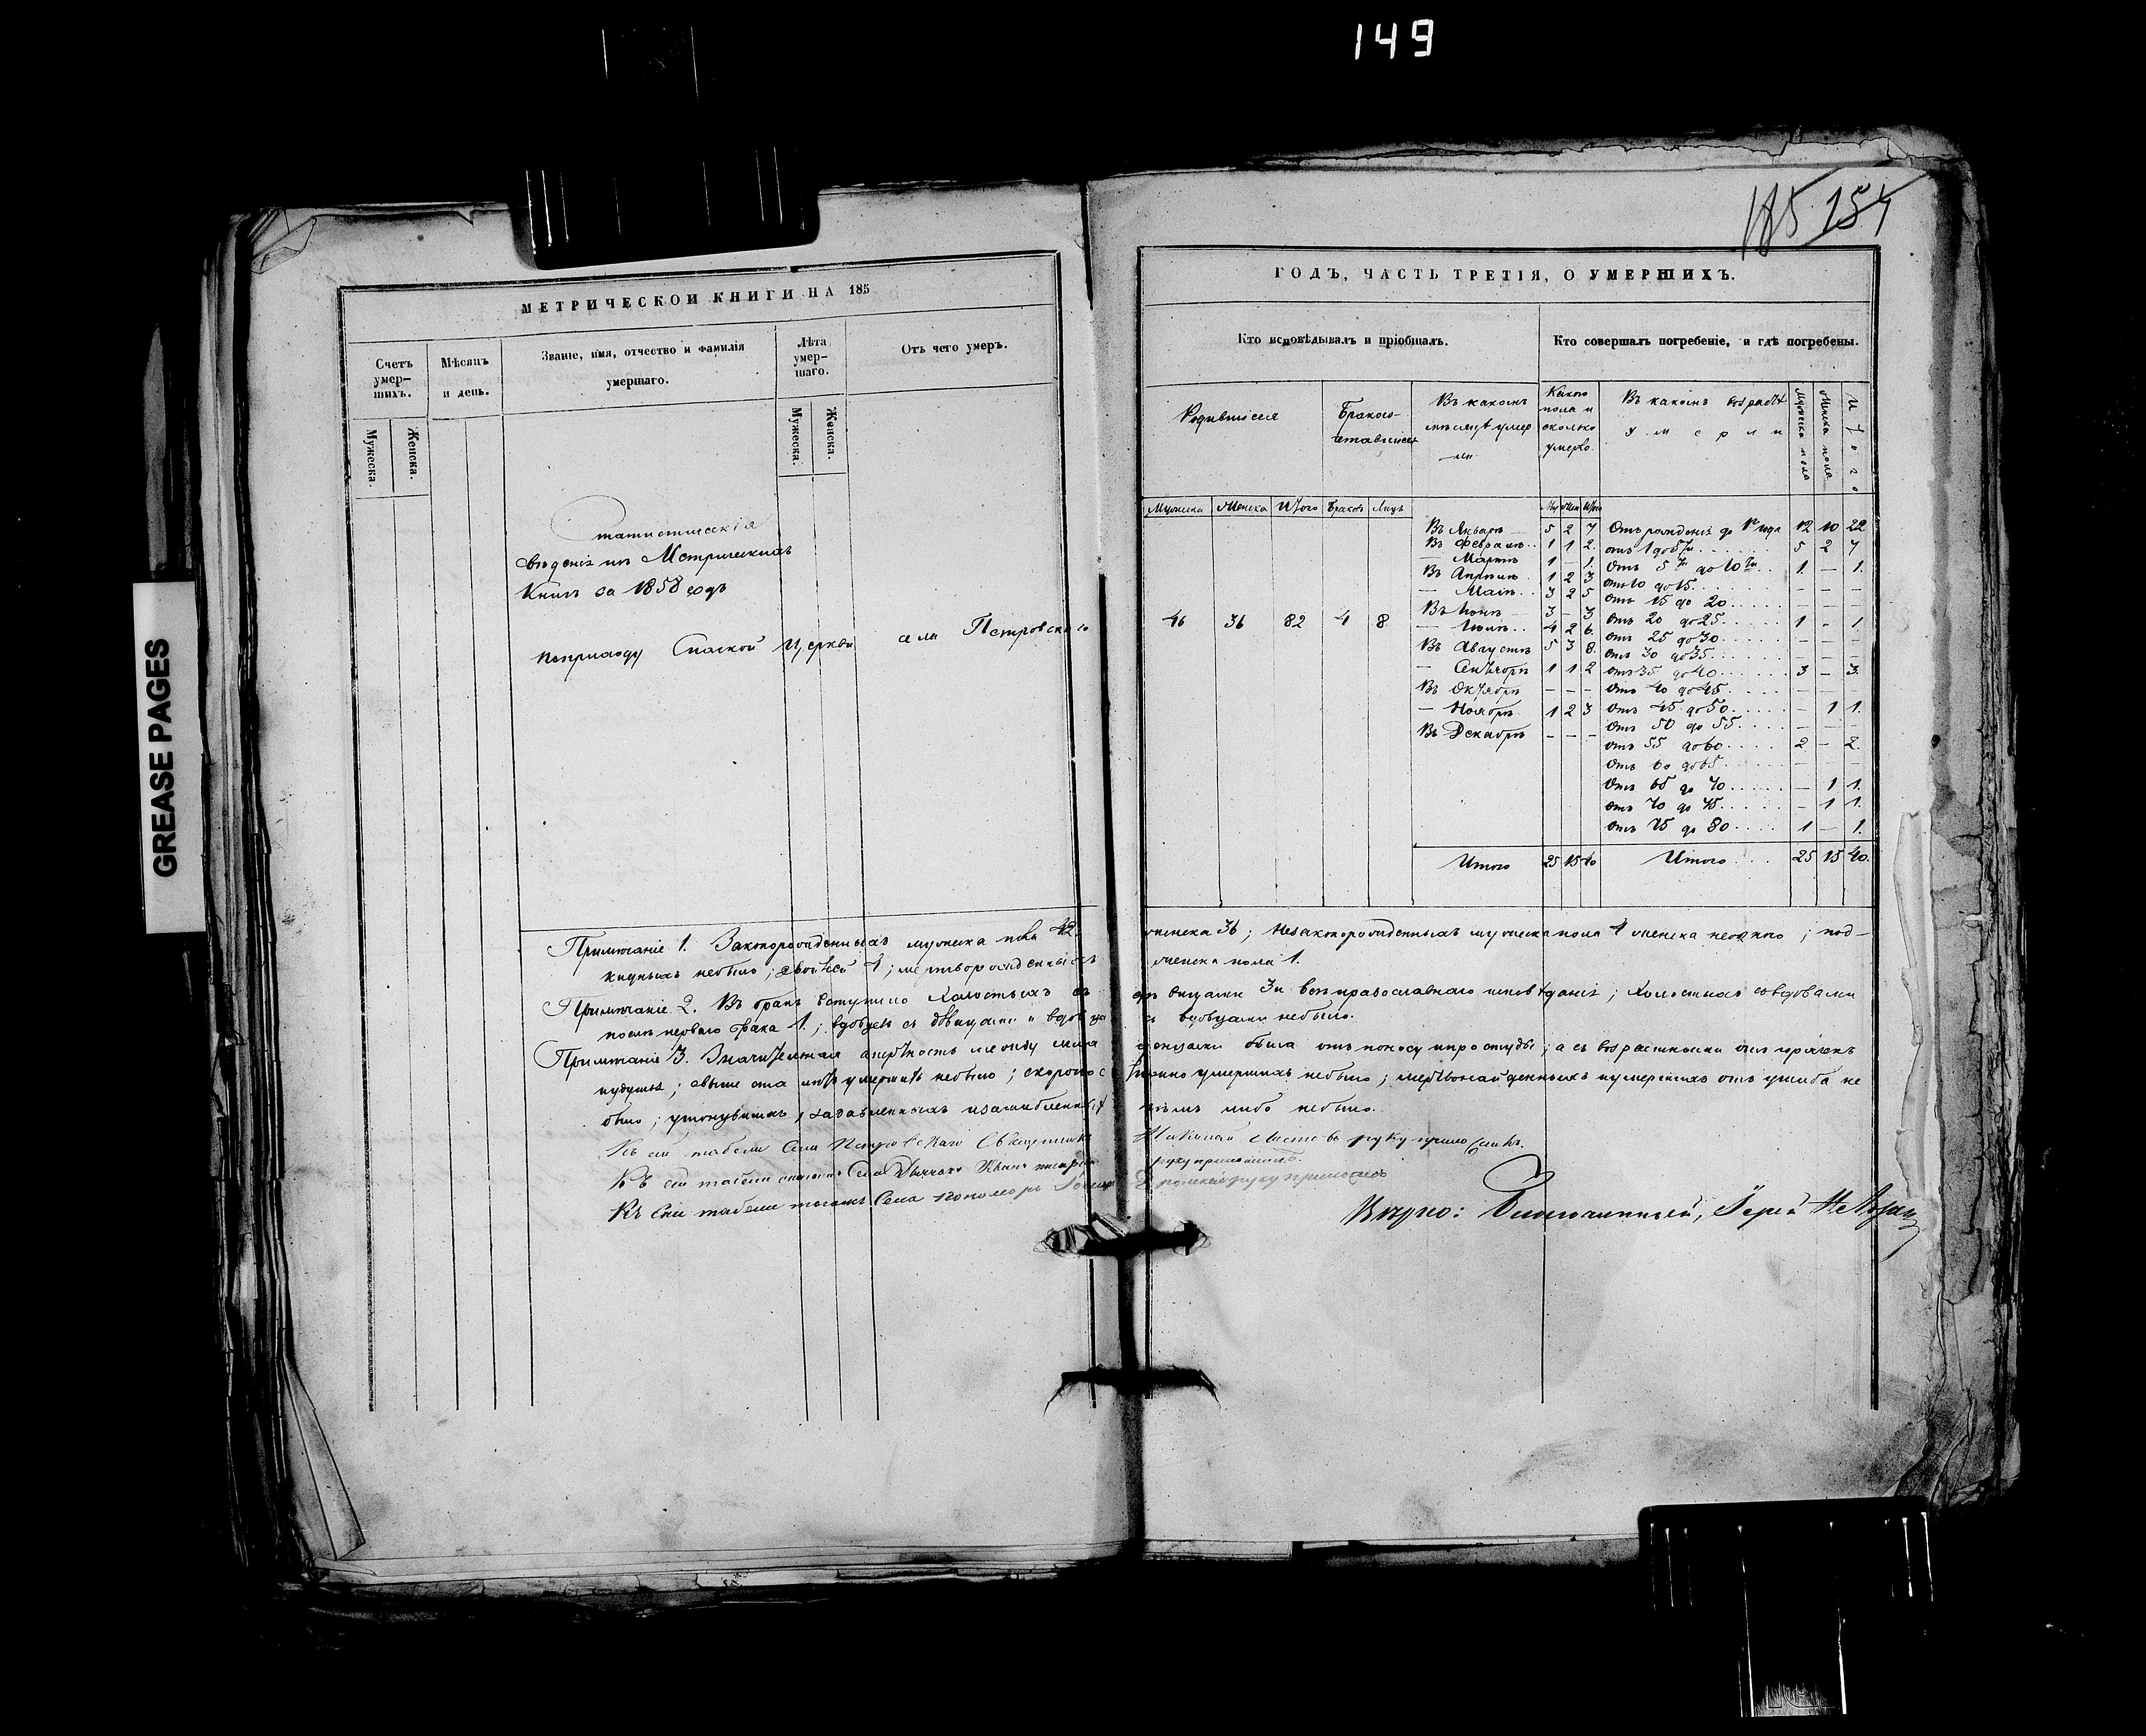 149
GREASE PAGES
МЕТРИЧЕСКОЙ КНИГИ НА 185
Счетъ умер-шихъ.
Мужеска.
Женска.
Мѣсяцъ и день.
Званіе, имя, отчество и фамилія умершаго.
Лѣта умер-шаго.
Мужеска.
Женска.
Отъ чего умеръ.
Статистическія
свѣденія изъ Метрическихъ
Книгъ за 1858 годъ
по приходу Спаской Церкви села Петровскаго
154
ГОДЪ, ЧАСТЬ ТРЕТІЯ, О УМЕРШИХЪ.
Кто исповѣдывалъ и пріобщалъ.
Кто совершалъ погребеніе, и гдѣ погребены.
Родившіеся
Мужеска Женска Итого
46 36 82
Бракосочетавшіеся
Браковъ Лицъ
4 8
Въ какомъ мѣсяцѣ умерли
Какого пола и сколько умерло
Му Жен Итого
Въ Январѣ 5 2 7
Въ Февралѣ 1 1 2
— Мартѣ 1 — 1
Въ Апрѣлѣ 1 2 3
— Маѣ 3 2 5
Въ Іюнѣ 3 — 3
— Іюлѣ 4 2 6
Въ Августѣ 5 3 8
— Сентябрѣ 1 1 2
Въ Октябрѣ — — —
— Ноябрѣ 1 2 3
Въ Декабрѣ — — —
Итого 25 15 40
Въ какомъ возрастѣ умерли
Мужеска пола
Женска пола
Итого
Отъ рожденія до 1го года 12 10 22
отъ 1 до 5ти 5 2 7
Отъ 5ти до 10ти 1 — 1
отъ 10 до 15 — — —
отъ 15 до 20 — — —
Отъ 20 до 25 1 — 1
отъ 25 до 30 — — —
отъ 30 до 35 — — —
отъ 35 до 40 3 — 3
Отъ 40 до 45 — — —
Отъ 45 до 50 — 1 1
Отъ 50 до 55 — — —
отъ 55 до 60 2 — 2
Отъ 60 до 65 — — —
Отъ 65 до 70 — 1 1
отъ 70 до 75 — 1 1
отъ 75 до 80 1 — 1
Итого 25 15 40
Примѣчаніе 1. Законорожденныхъ мужеска пола 42 женска 36; незаконорожденныхъ мужеска пола 4 женска ; под-
кидныхъ небыло; двойней 1; мертворожденныхъ женска пола 1.
Примѣчаніе 2. Въ бракъ вступило холостыхъ съ дѣвицами 3 и все православнаго исповѣданія; холостыхъ со вдовами
послѣ перваго брака 1; вдовцевъ съ дѣвицами и вдовцевъ съ вдовицами небыло.
Примѣчаніе 3. Значительная смертность между была отъ поносу и простуды; а съ возрастными отъ горячекъ
; свыше ста лѣтъ умершихъ небыло; скоропостижно умершихъ небыло; мертвонайденныхъ и умершихъ отъ ушиба не
было; утонувшихъ, задавленныхъ кѣмъ либо небыло.
Къ сей табели Села Петровскаго Священникъ Николай руку приложилъ.
Къ сей табели Села Дьячокъ Иванъ руку приложилъ.
Къ сей табели тогожъ Села Пономарь руку приложилъ
Вѣрно: Благочинный, Іерей